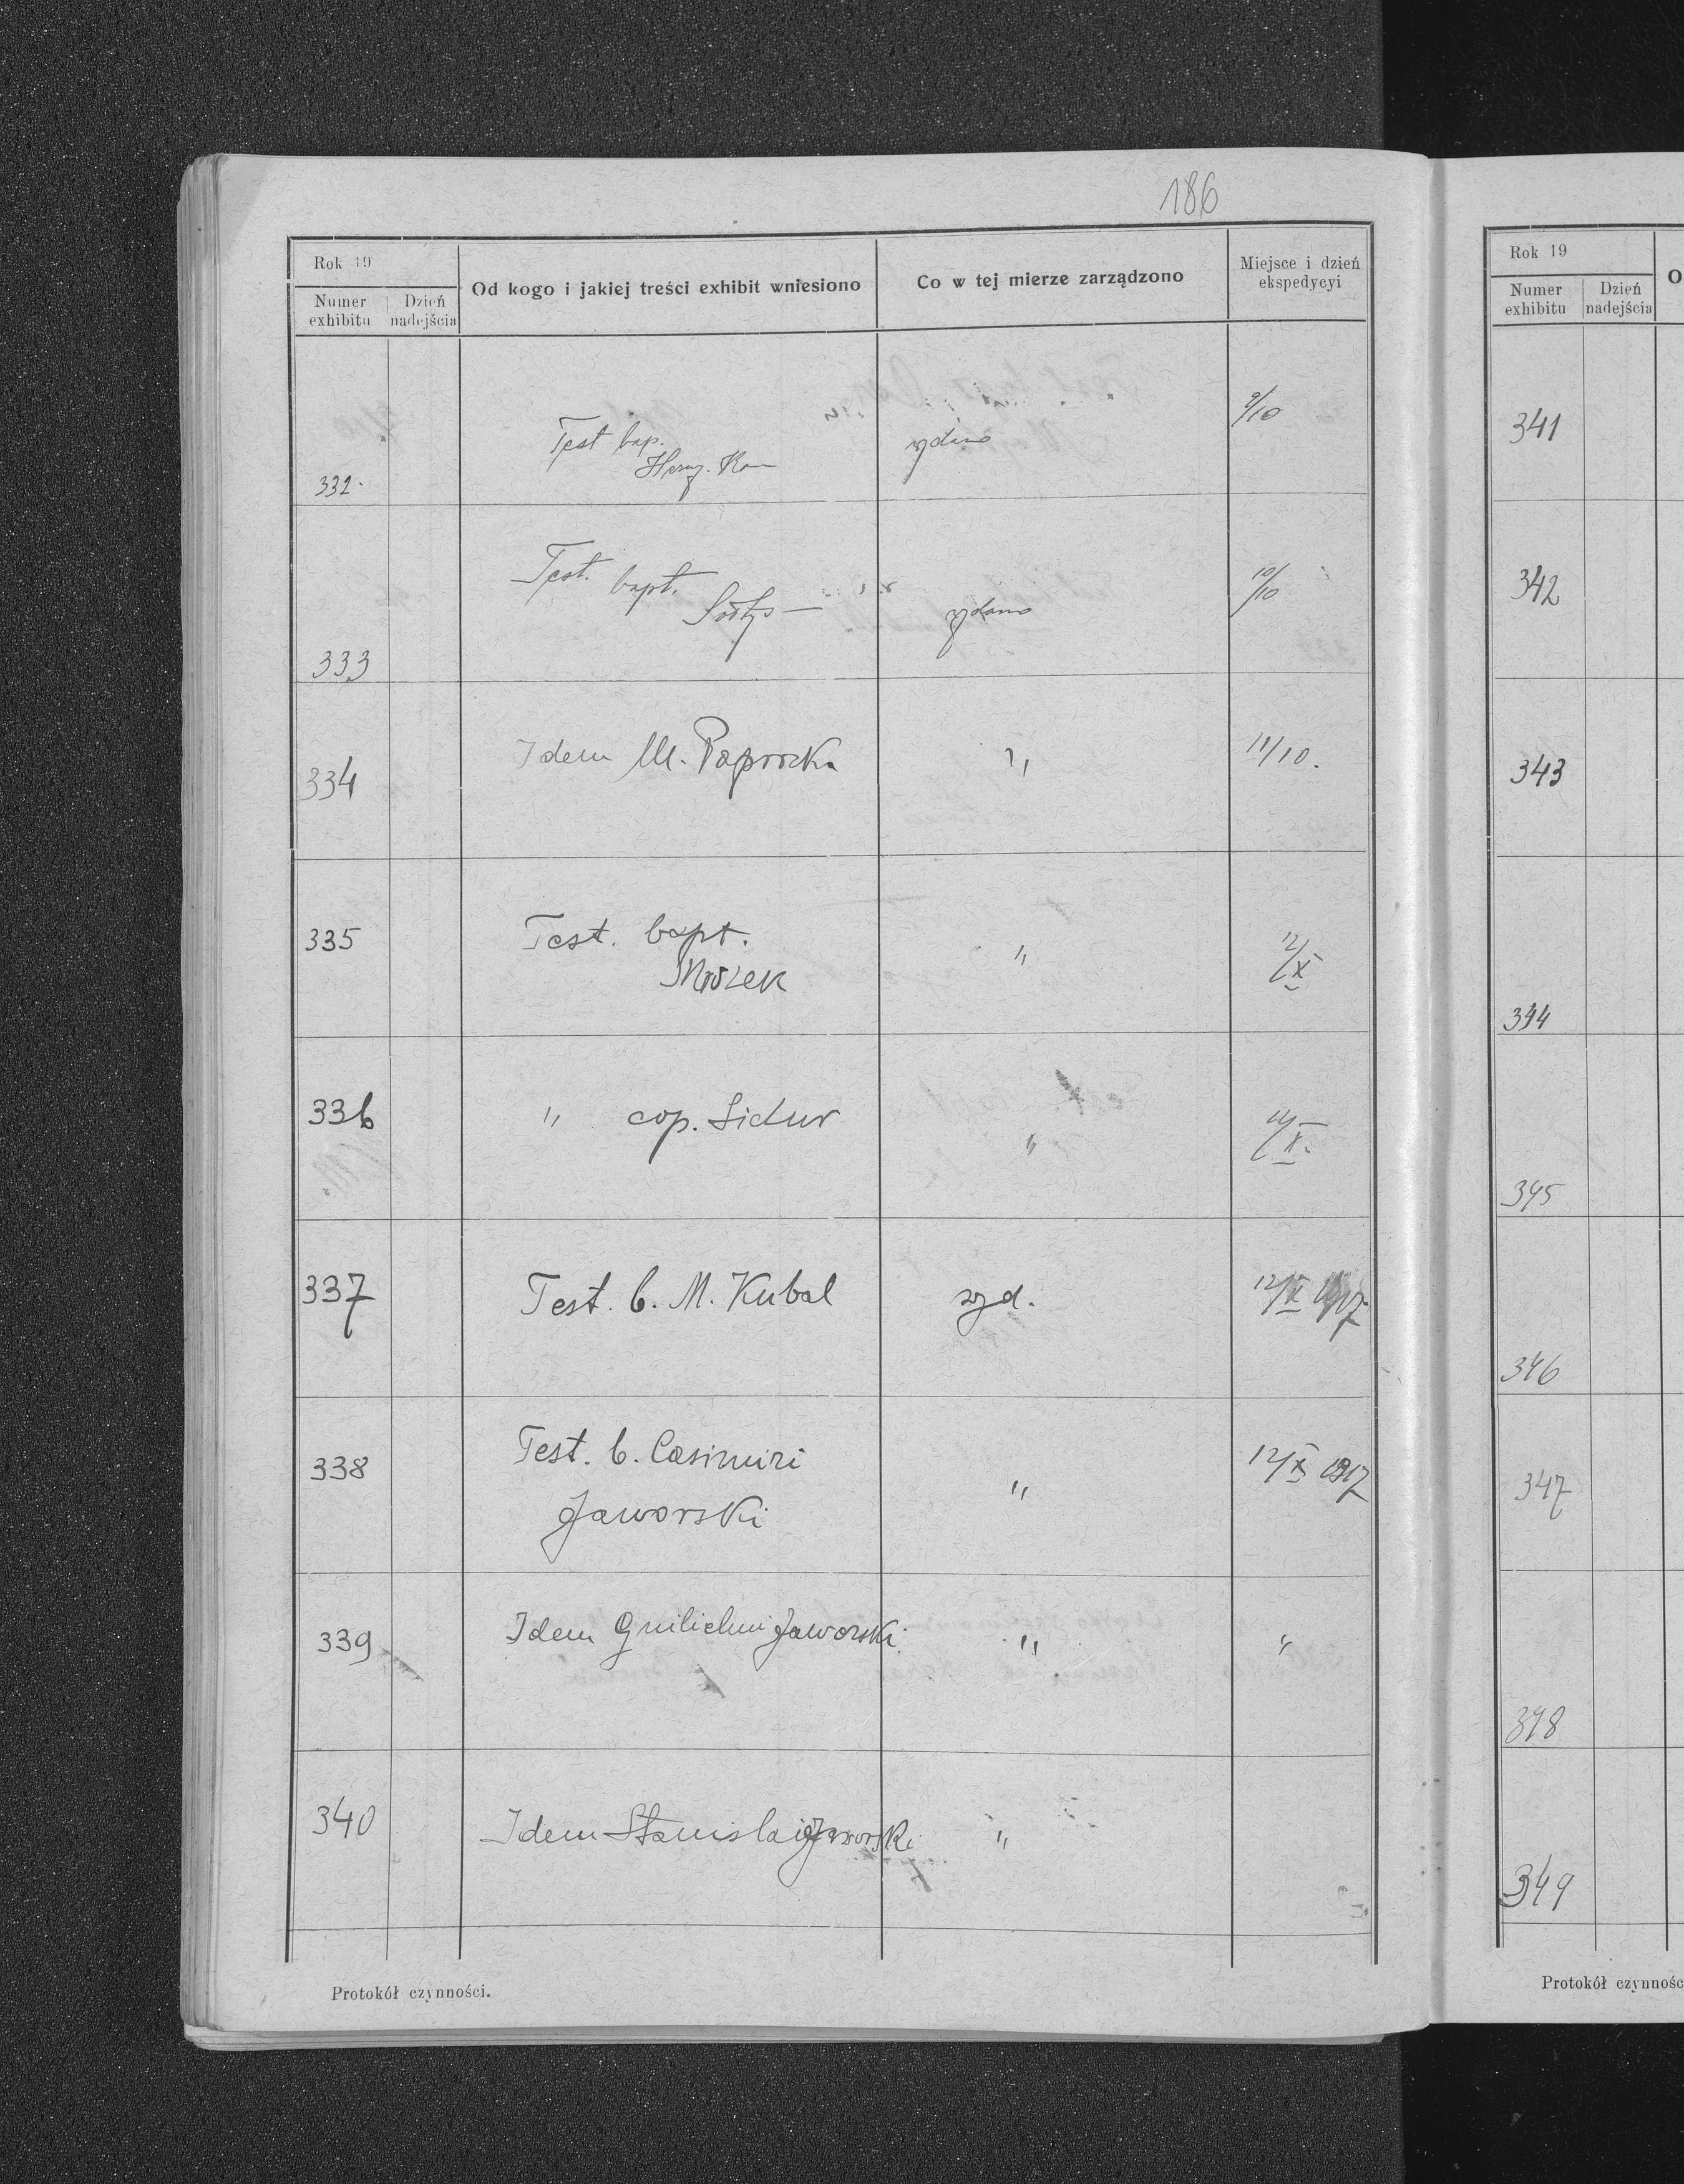 186
Rok 19
Numer exhibitu
Dzień nadejścia
Od kogo i jakiej treści exhibit wniesiono
Co w tej mierze zarządzono
Miejsce i dzień ekspedycyi
332 Test bap. 9/10
333 Test. bapt. Sołtys wydano 10/10
334 Idem M. Paprocka " 11/10.
335 Test. bapt. " 12/X
Mrozek
336 " cop. Sidur " 12/X.
337 Test. b. M. Kubal wyd. 12/X 1917
338 Test. b. Casimiri " 12/X 1917
Jaworski
339 Idem Guilielmi Jaworski " "
340 Idem Stanislai Jaworski "
Protokół czynności.
Rok 19
Numer exhibitu
Dzień nadejścia
O
341
342
343
344
345
346
347
348
349
Protokół czynnośc